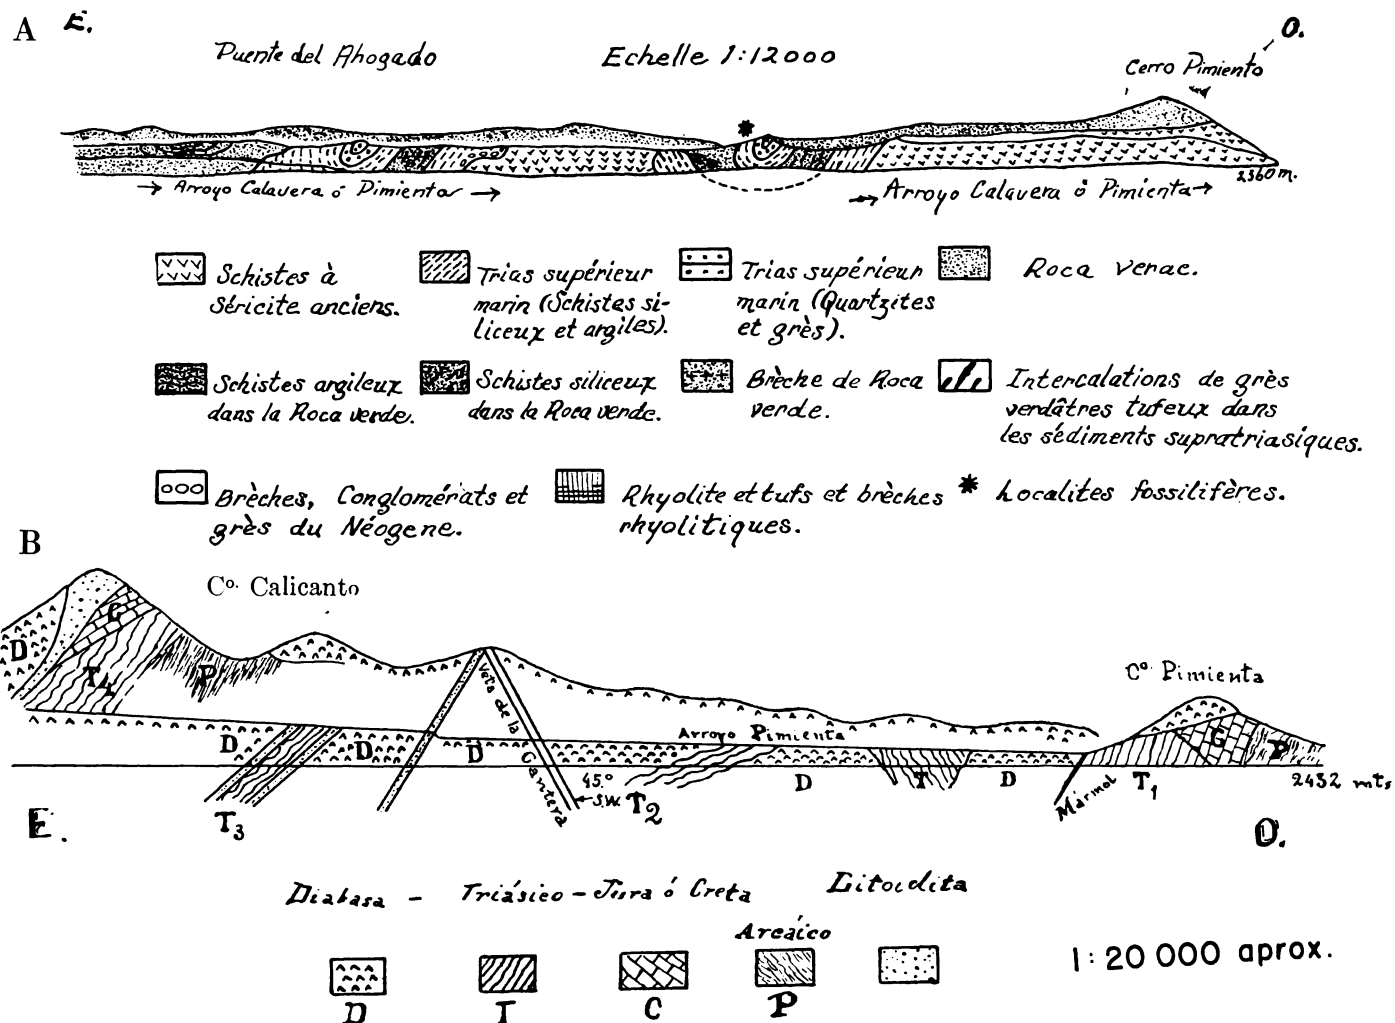 A E. O.
Puente del Ahogado Echelle 1:12000
Cerro Pimiento
2360 m.
→ Arroyo Calavera ó Pimienta →
→ Arroyo Calavera ó Pimienta →
Schistes à
Séricite anciens.
Trias supérieur
marin (Schistes si-
liceux et argiles).
Trias supérieur
marin (Quartzites
et grès).
Roca verae.
Schistes argileux
dans la Roca verde.
Schistes siliceux
dans la Roca verde.
Brèche de Roca
verde.
Intercalations de grès
verdâtres tufeux dans
les sédiments supratriasiques.
Brèches, Conglomérats et
grès du Néogene.
Rhyolite et tufs et brèches
rhyolitiques.
* Localites fossilifères.
B
Co. Calicanto
Co. Pimienta
D C T4 P
Veta de la Cantera
Arroyo Pimienta
D D D D T D
C P
45°
S.W.
T2
Mármol
T1
2432 mts
T3
E. O.
Diabasa - Triásico - Jura ó Creta Litoidita
Arcáico
1:20 000 aprox.
D T C P